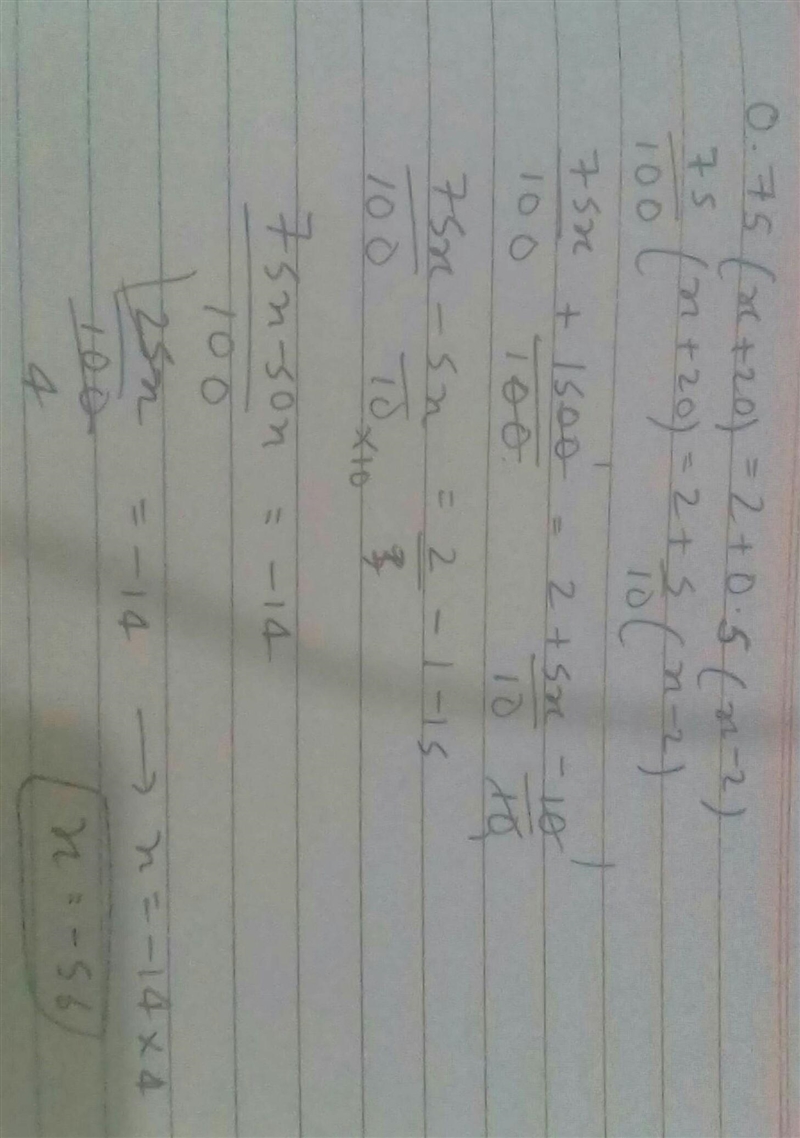 0.75(x+20) = 2+0.5(x-2)
75/100 (x+20) = 2+5/10 (x-2)
75x/100 + 1500/100 = 2+5x/10 - 10/10
75x/100 - 5x/10 ×10 = 2 - 1 - 15
75x-50x/100 = -14
25x/100 4 = -14 → x = -14×4
x = -56